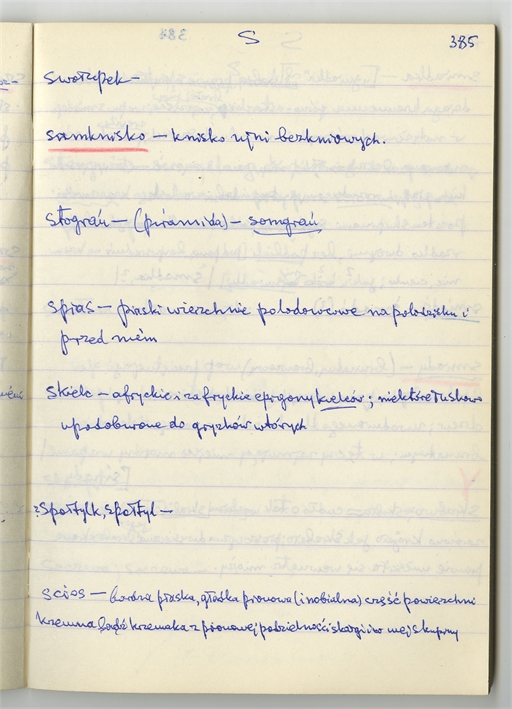 S 385
swołupek –
samknisko – knisko ujni bezkniowych.
stograń – (piramida) – somgrań
spias – piaski wierzchnie polodowcowe na polodzisku i
przed niém
skielc – afryckie i zafryckie epigony kielców; niektóre łuskowo
upodobnione do gryzków wtórych
?Społtylk, społtyl –
scios – bardzo płaska, gładka pionowa (i nobialna) część powierzchni
krzemna bądź krzemaka z pionowej podzielności skargi i w